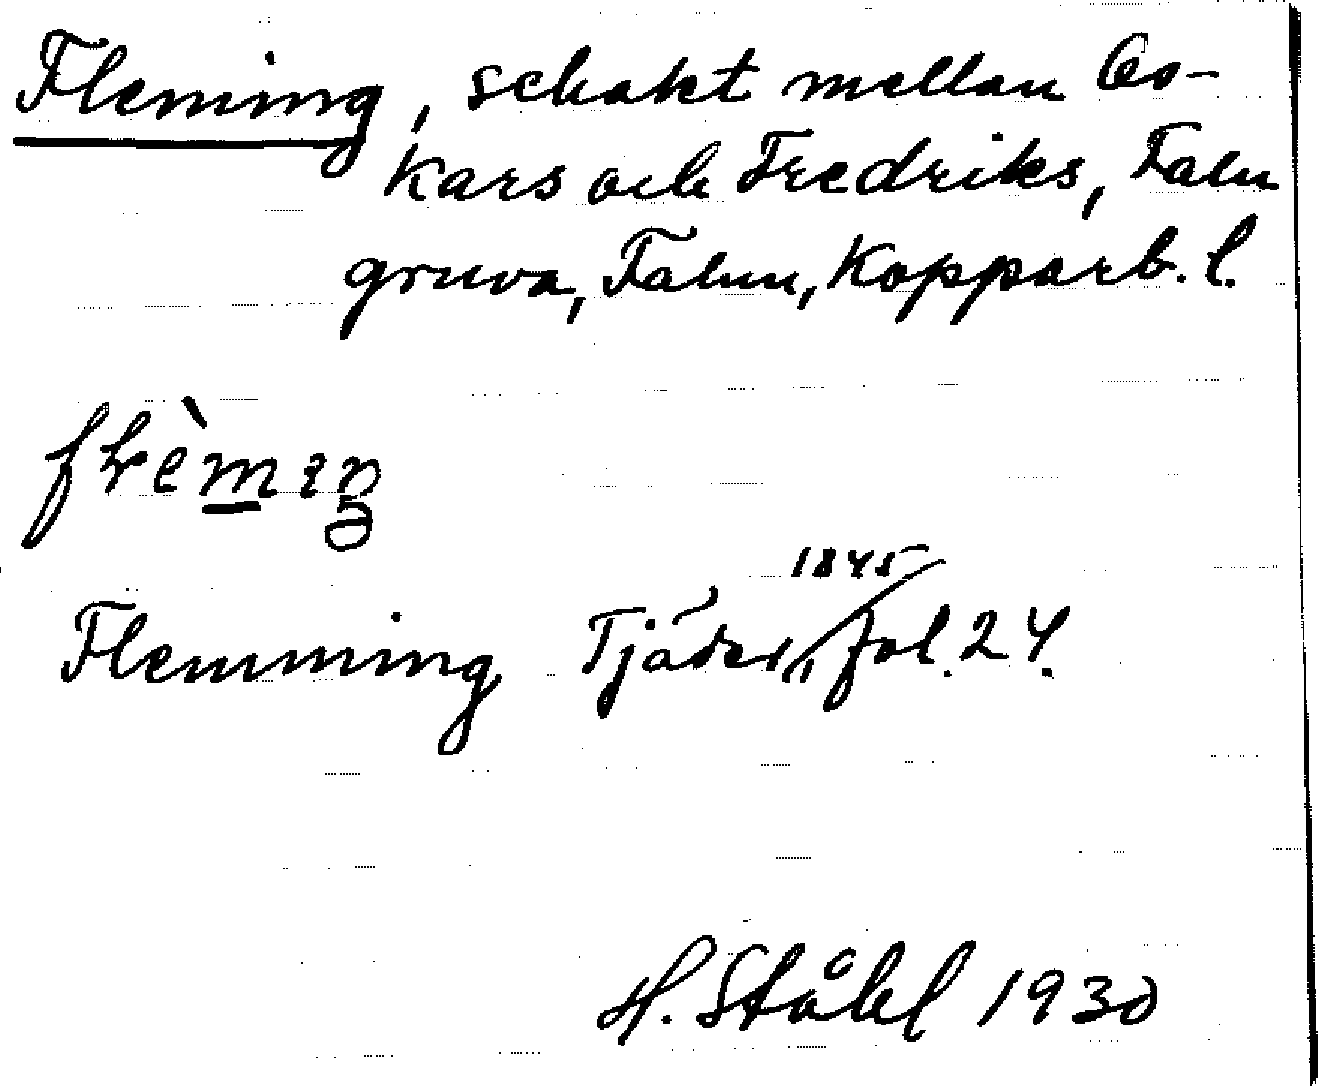 Fleming, schakt mellan Os-
kars och Fredriks, Falu
gruva, Falun, Kopparb. l.
Flemming Tjäder, 1845 fol. 24.
H. Ståhl 1930